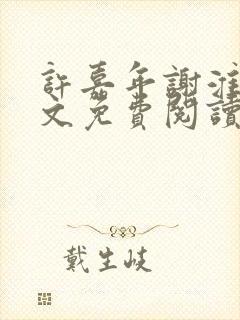 許嘉年謝淮
文免費閱讀
戴生岐